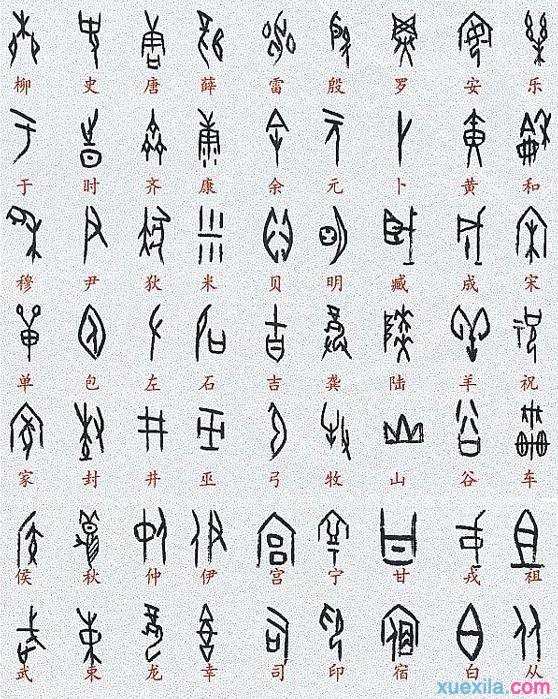 柳 史 唐 薛 雷 殷 罗 安 乐
于 时 齐 康 余 元 卜 黄 和
穆 尹 狄 米 贝 明 臧 成 宋
单 包 左 石 吉 龚 陆 羊 祝
家 封 井 巫 弓 牧 山 谷 车
侯 秋 仲 伊 宫 宁 甘 戎 祖
武 束 龙 幸 司 印 宿 白 从
xuexila.com